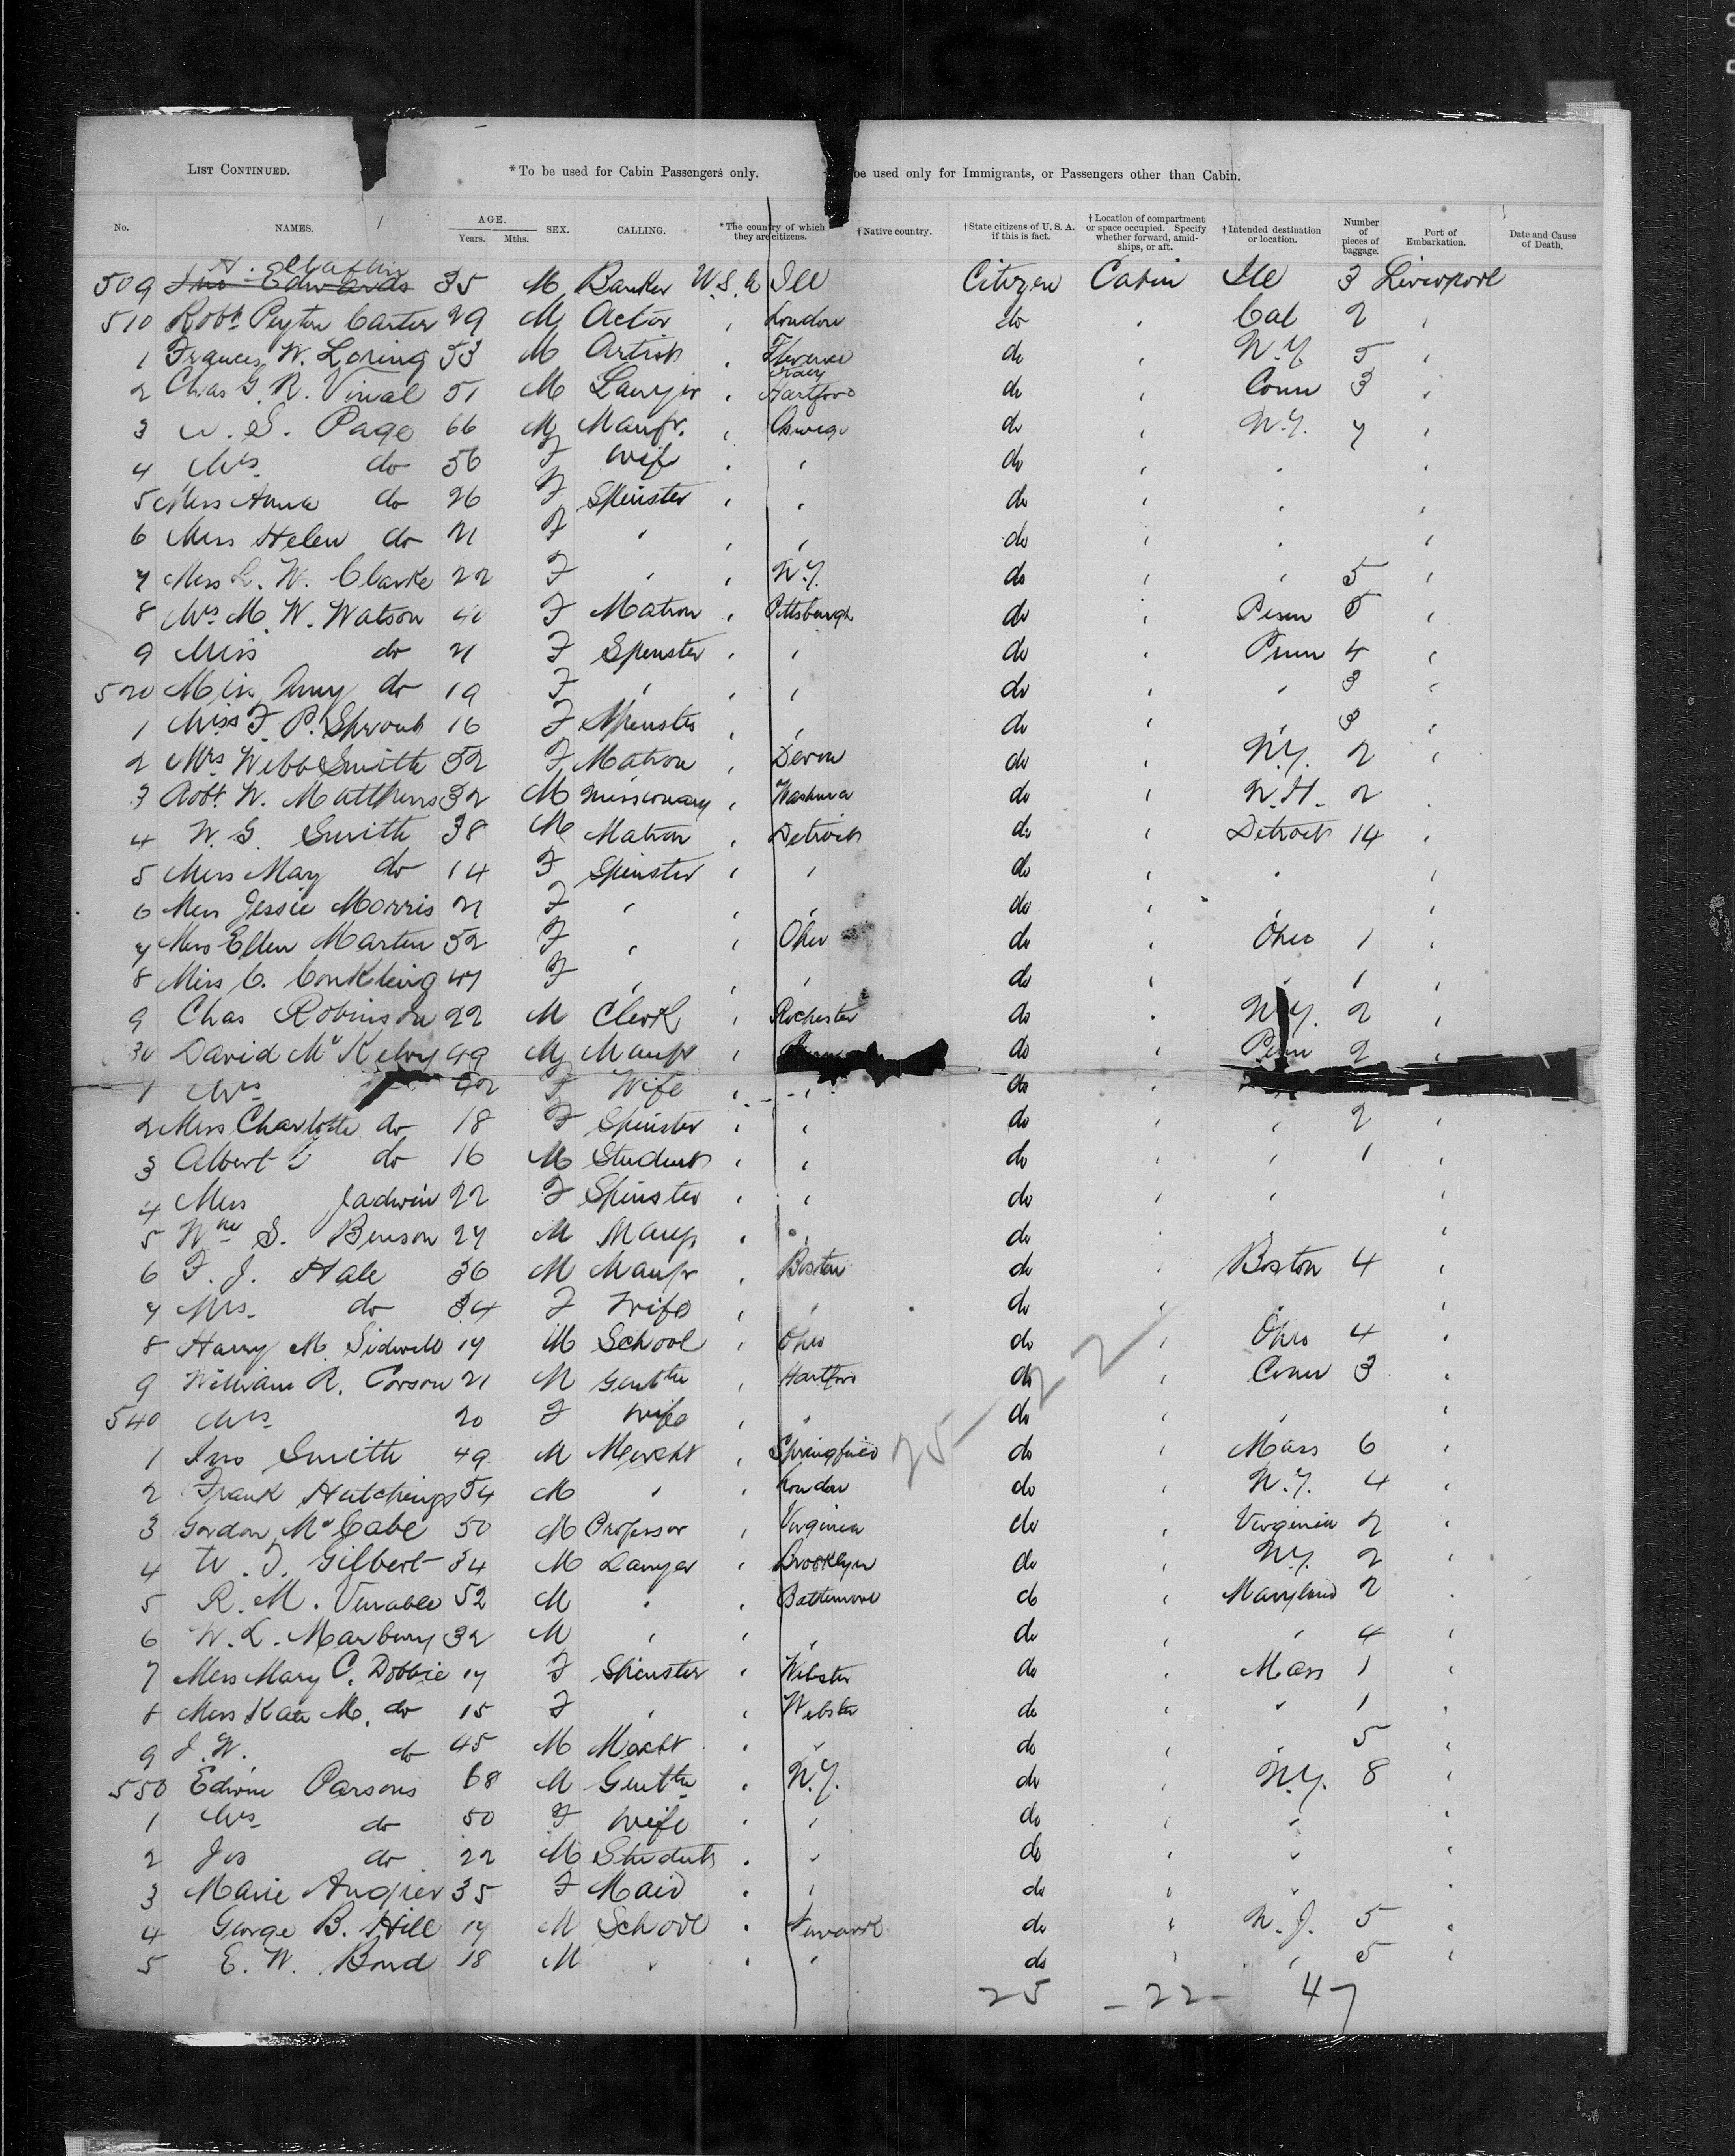 LIST CONTINUED. *To be used for Cabin Passengers only. be used only for Immigrants, or Passengers other than Cabin.
No. NAMES. AGE. Years. Mths. SEX. CALLING. *The country of which they are citizens. †Native country. †State citizens of U. S. A. if this is fact. †Location of compartment or space occupied. Specify whether forward, amidships, or aft. †Intended destination or location. Number of pieces of baggage. Port of Embarkation. Date and Cause of Death.
509 Jno Edwards 35 M Banker U.S.A Ill Citizen Cabin Ill 3 Liverpool
510 Robt Peyton Carter 29 M Actor " London do " Cal 2 "
1 Frances W. Loring 53 M Artist " Florence Italy do " N.Y. 5 "
2 Chas G. R. Vinal 51 M Lawyer " Hartford do " Conn 3 "
3 Page 66 M Manfr. " Oswego do " N.Y. 7 "
4 Mrs do 56 F Wife " " do " " "
5 Miss Anna do 26 F Spinster " " do " " "
6 Miss Helen do 21 F " " " do " " "
7 Miss L. W. Clarke 22 F " " N.Y. do " " 5 "
8 Mrs M. W. Watson F Matron " Pittsburgh do " Penn 5 "
9 Miss do 21 F Spinster " " do " Penn 4 "
520 Miss Amy do 19 F " " " do " " 3 "
1 Miss F. P. 16 F Spinster " " do " " 3 "
2 Mrs Webb Smith 52 F Matron " Devon do " N.Y. 2 "
3 Robt W. Matthews 32 M Missionary " Nashua do " N.H. 2 "
4 W. G. Smith 38 M Matron " Detroit do " Detroit 14 "
5 Miss May do 14 F Spinster " " do " " "
6 Miss Jessie Morris 21 F " " " do " " "
7 Miss Ellen Martin 52 F " " Ohio do " Ohio 1 "
8 Miss C. Conkling 47 F " " " do " " 1 "
9 Chas Robinson 22 M Clerk " Rochester do " N.Y. 2 "
30 David McKelvy 49 M Manfr " do " Penn 2 "
1 Mrs 42 F Wife " " do "
2 Miss Charlotte do 18 F Spinster " " do " " 2 "
3 Albert do 16 M Student " " do " " 1 "
4 Miss Jadwin 22 F Spinster " " do " " "
5 Wm S. Benson 27 M Manfr " " do " "
6 F. J. Hale 36 M Manfr " Boston do " Boston 4 "
7 Mrs. do 34 F Wife " " do " "
8 Harry M. Sidwell 17 M School " Ohio do " Ohio 4 "
9 William R. Corson 21 M Gentln " Hartford do " Conn 3 "
540 Mrs 20 F Wife " " do " " "
1 Jno Smith 49 M Mercht " Springfield do " Mass 6 "
2 Frank Hutchings 54 M " " London do " N.Y. 4 "
3 Gordon McCabe 50 M Professor " Virginia do " Virginia 2 "
4 W. J. Gilbert 34 M Lawyer " Brooklyn do " N.Y. 2 "
5 R. M. Venable 52 M " " Baltimore do " Maryland 2 "
6 W. L. Marbury 32 M " " " do " " 4 "
7 Miss Mary C. Dobbie 17 F Spinster " Webster do " Mass 1 "
8 Miss Kate M. do 15 F " " Webster do " " 1 "
9 J. W. do 45 M Mercht " " do " 5 "
550 Edwin Parsons 68 M Gentln " N.Y. do " N.Y. 8 "
1 Mrs do 50 F Wife " " do " " "
2 Jos do 22 M Student " " do " " "
3 Marie Augier 35 F Maid " " do " " "
4 George B. Hill 17 M School " Newark do " N.J. 5 "
5 E. W. Bond 18 M " " " do " " 5 "
25 22
25 - 22 - 47